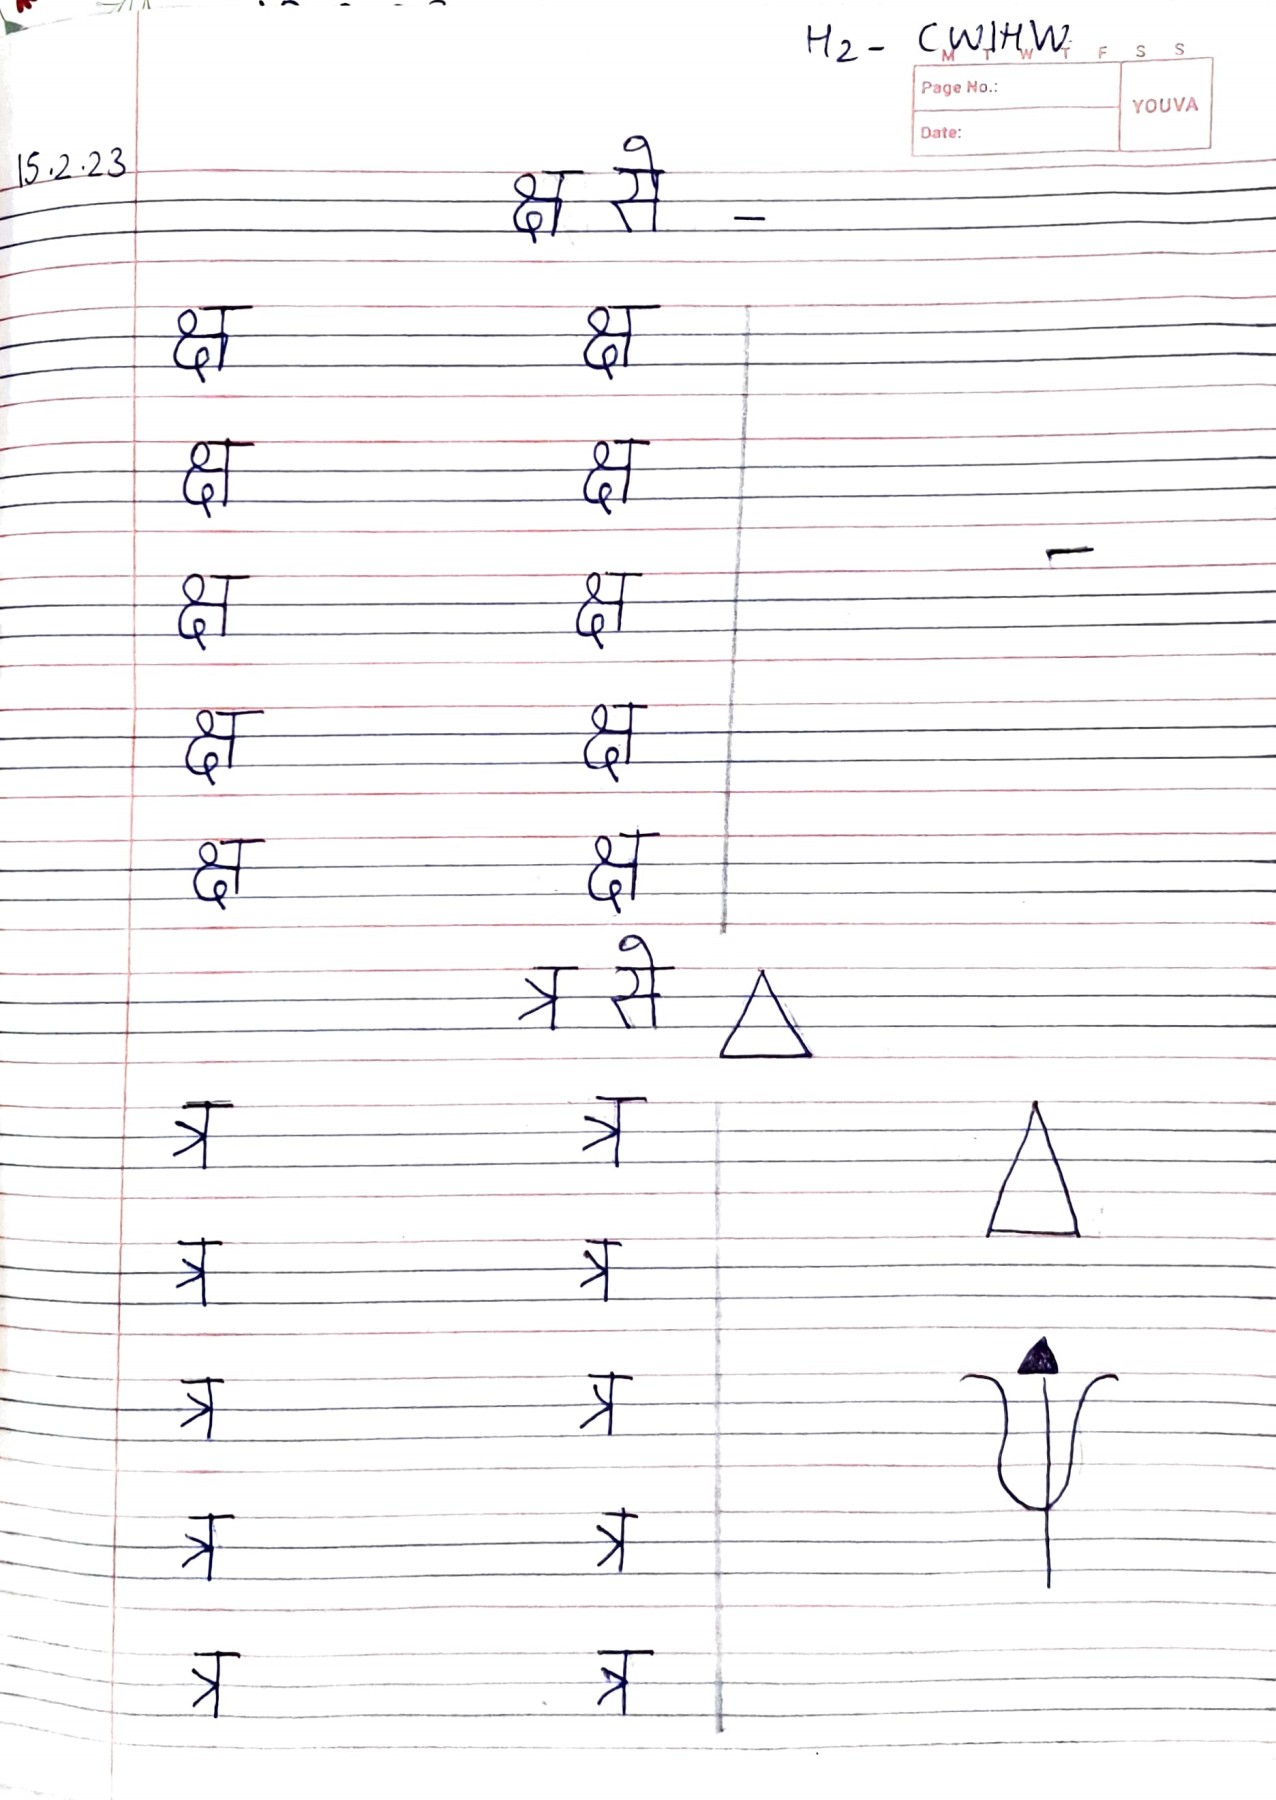 H2- CW/HW
M T W T F S S
Page No.:
YOUVA
Date:
15.2.23
क्ष से -
क्ष क्ष
क्ष क्ष
क्ष क्ष
क्ष क्ष
क्ष क्ष
त्र से
त्र त्र
त्र त्र
त्र त्र
त्र त्र
त्र त्र